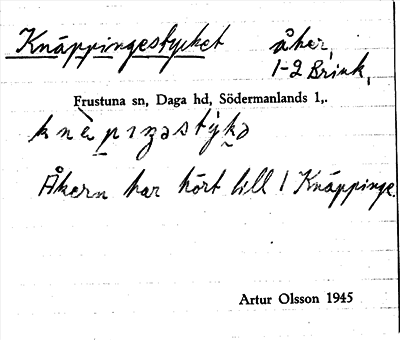 Knäppingestycket åker,
1-2 Brink,
Frustuna sn, Daga hd, Södermanlands l,.
Åkern har hört till 1 Knäppinge.
Artur Olsson 1945